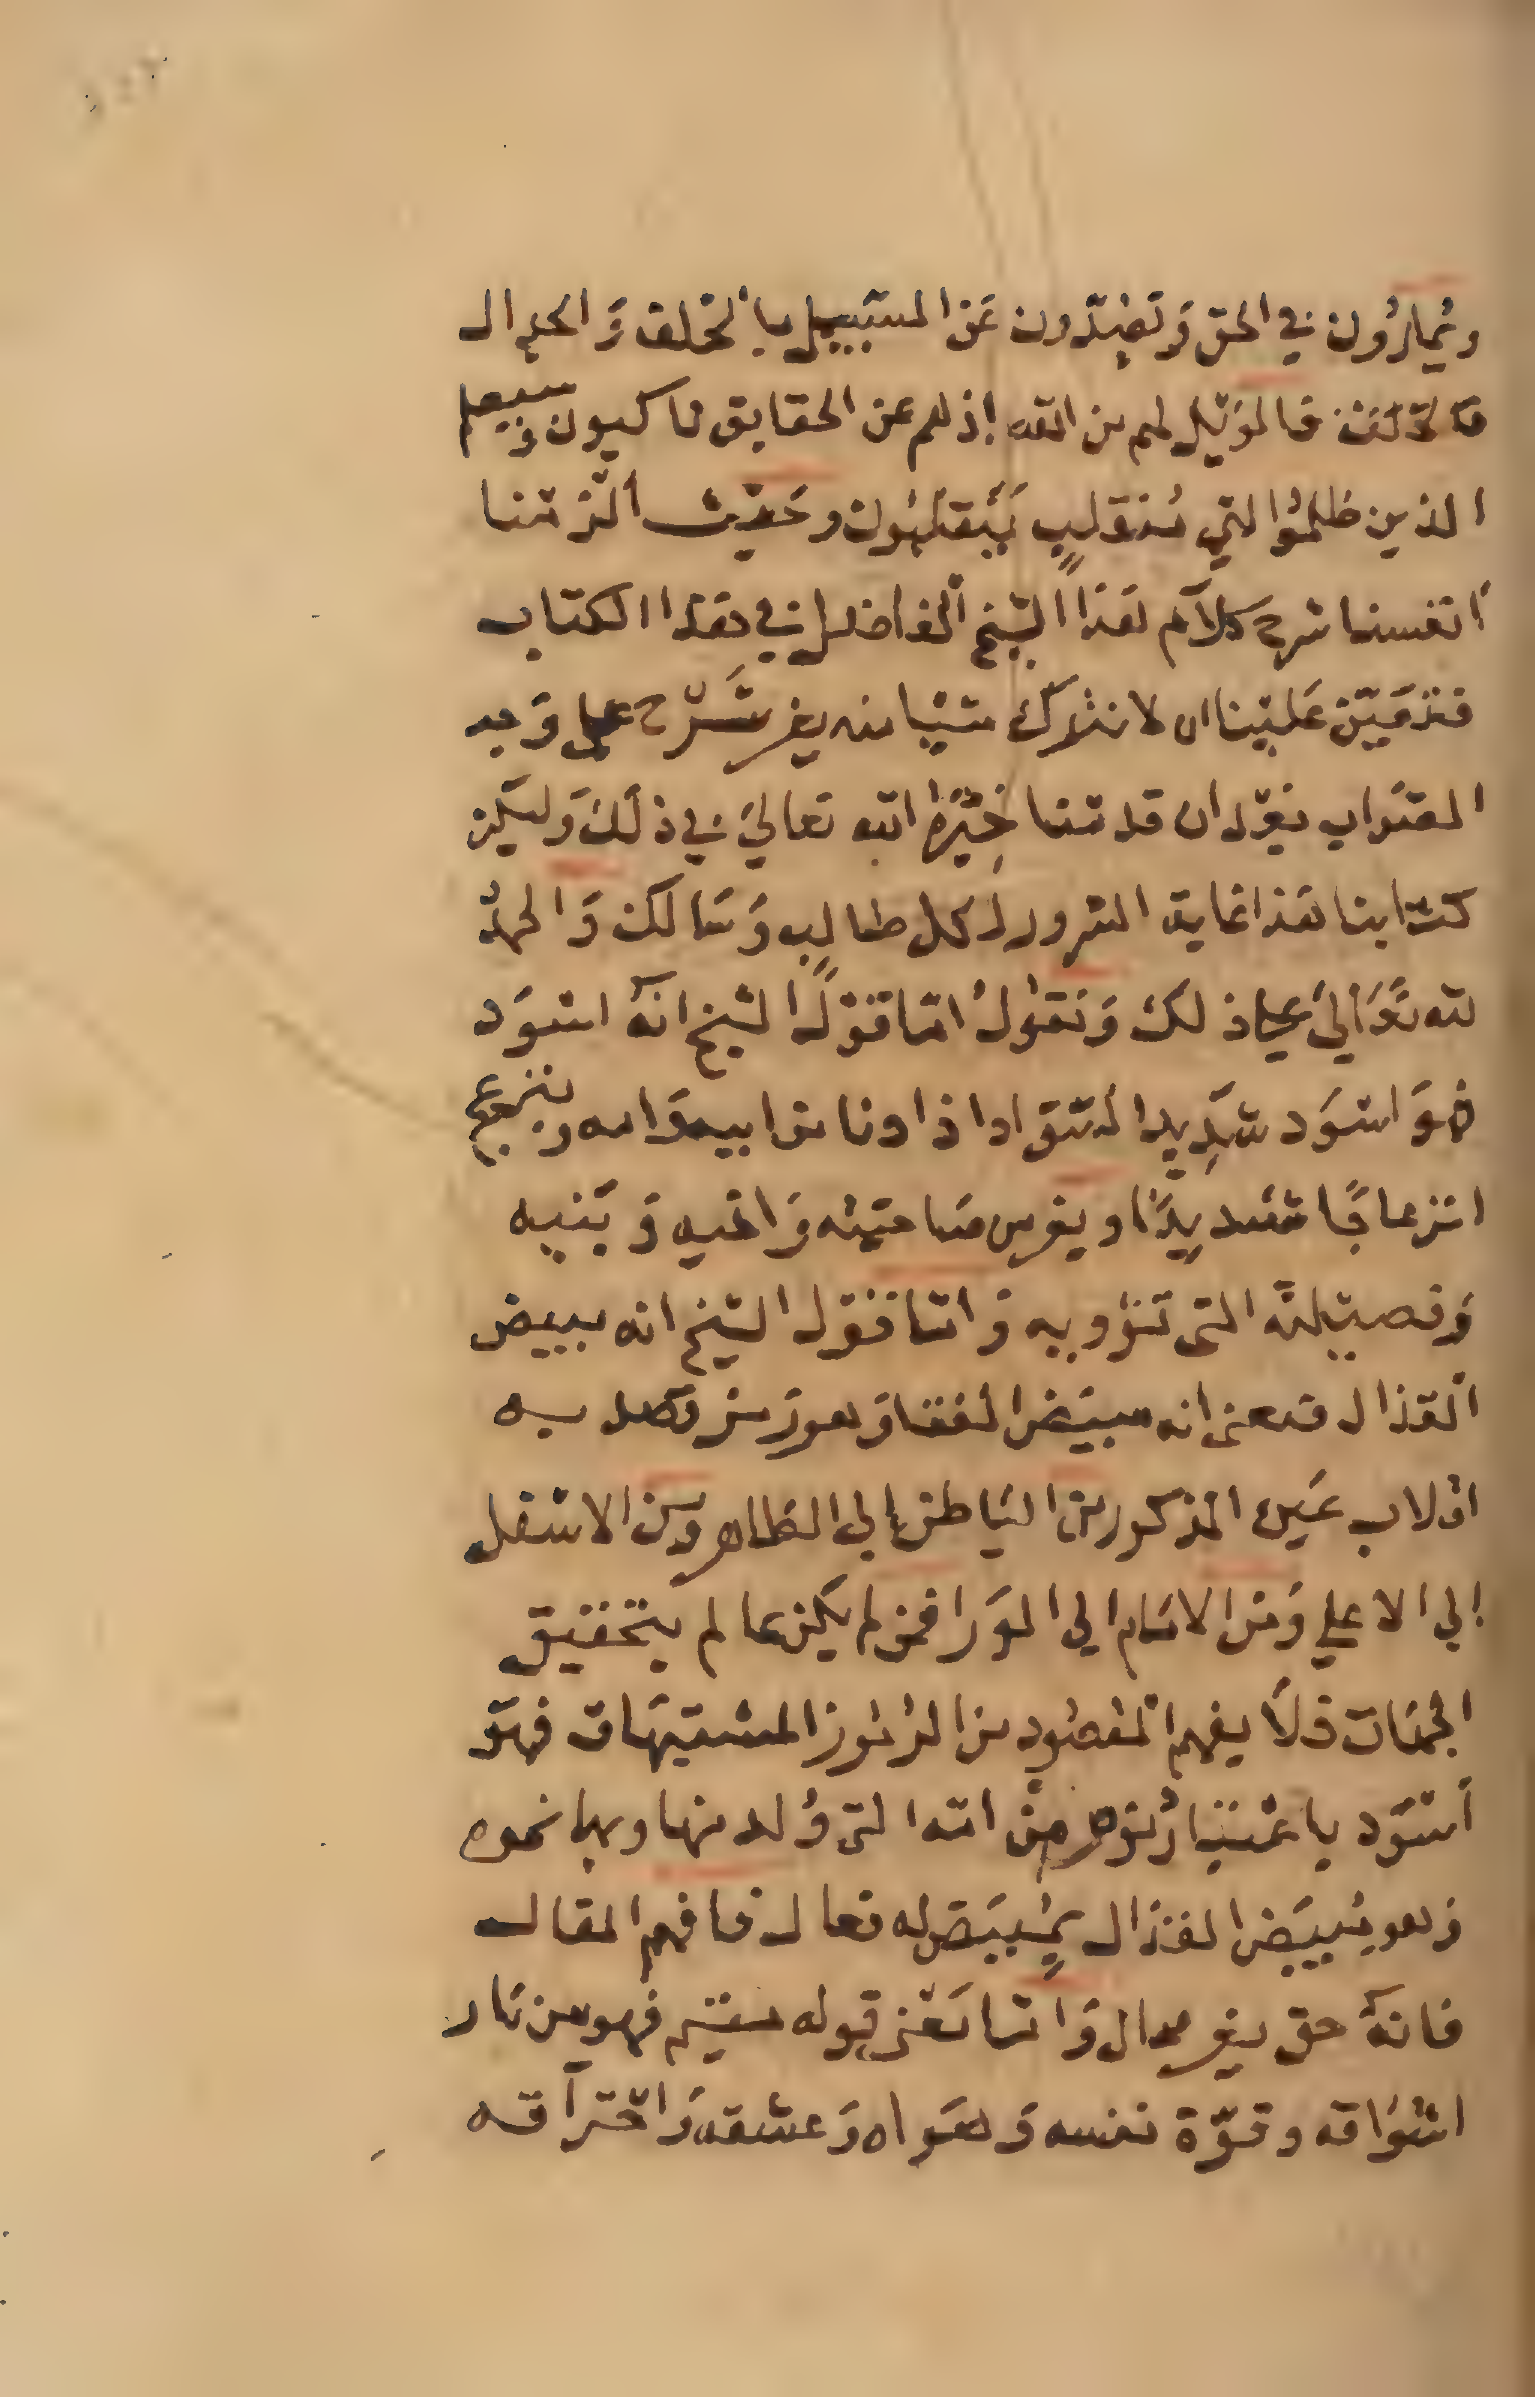 ويمارون في الحق ويصدّون عن السبيل بالخلف والجدال
فالويل لهم من الله إذ هم عن الحقايق ناكبون وسيعلم
الذين ظلموا اي منقلبٍ ينقلبون وحيث ألزمنا
أنفسنا شرح كلام هذا الشيخ الفاضل في هذا الكتاب
فتعيّن علينا ان لا نترك شيا منه بغير شرح على وجه
الصواب بعد ان قدمنا خيرة الله تعالي في ذلك وليكن
كتابنا هذا غاية السرور لكل طالب وسالك والحمد
لله تعالي على ذلك ونقول اما قول الشيخ انه اسود
فهو اسود شديد السواد اذا دنا من ابيه وامه وينزعج
انزعاجًا شديدًا ويفر من صاحبته واخيه وبنيه
وفصيلته التي تؤويه واما قول الشيخ انه مبيض
القذال فمعنى انه مبيض القفا وهو رمز قصد به
انقلاب عين المذكور من الباطن إلى الظاهر ومن الاسفل
إلى الاعلي ومن الامام الي الورا فمن لم يكن عالم بتحقيق
الجهات فلا يفهم المقصود من الرموز المشتبهات فهو
أسود باعتبار لونه من امه التي وُلد منها وبها نموه
وهو مبيض القذال فافهم المقال
فانه حق بغير محال واما معنى قوله فهو من نار
اشواقه وقوّة نفسه وهواه وعشقه واحتراقه